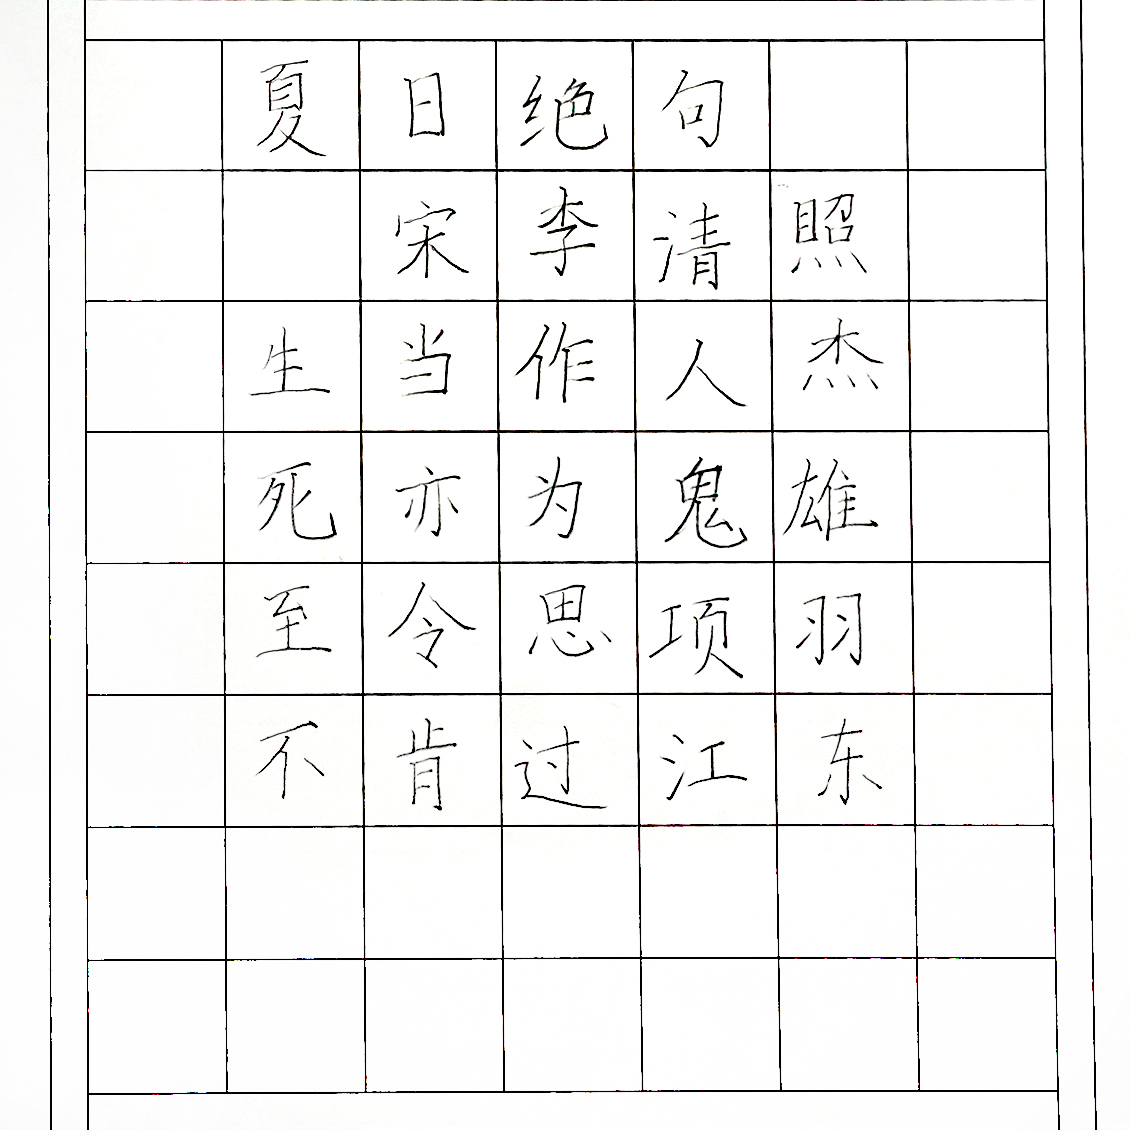 夏日绝句
宋李清照
生当作人杰
死亦为鬼雄
至令思项羽
不肯过江东